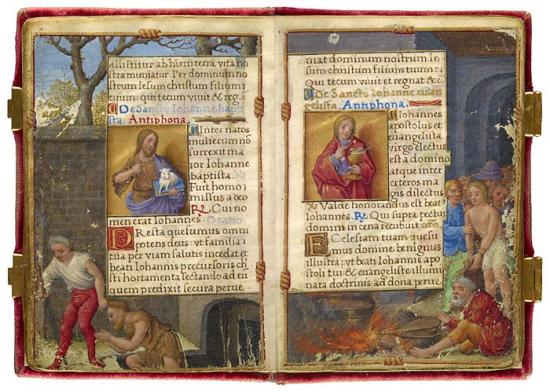 cllit itur ab hiemterna, vita no
stra muniatur. Per dominum no
strum iesum christum filium
tuum: qui tecum viuit & reg
De Sancto Iohanne bapti
sta. Antiphona.
Inter natos
mulierum no
surrexit ma
ior Iohanne
baptista.
Fuit homo
missus a deo
Cui no
men erat Iohannes Oratio
PResta quesumus omni
potens deus: vt familia
tua per viam salutis incedat et
beati Iohannis precursoris ch
risti hortamenta sectando ad eu
quem predixit secura perue
niat dominum nostrum Ie
sum christum filium tuum:
Qui tecum viuit et regnat &c
De Sancto Iohanne euan
gelista. Antiphona.
Iohannes
apostolus et
euangelista
virgo electus
est a domino
atque inter
ceteros ma
gis dilectus
Valde honorandus est beat
Iohannes. Qui supra pectus
domini in cena recubuit
ECclesiam tuam quesu
mus domine benignus
illustra: vt beati Iohannis apo
stoli tui & euangeliste illumi
nata doctrinis ad dona perue